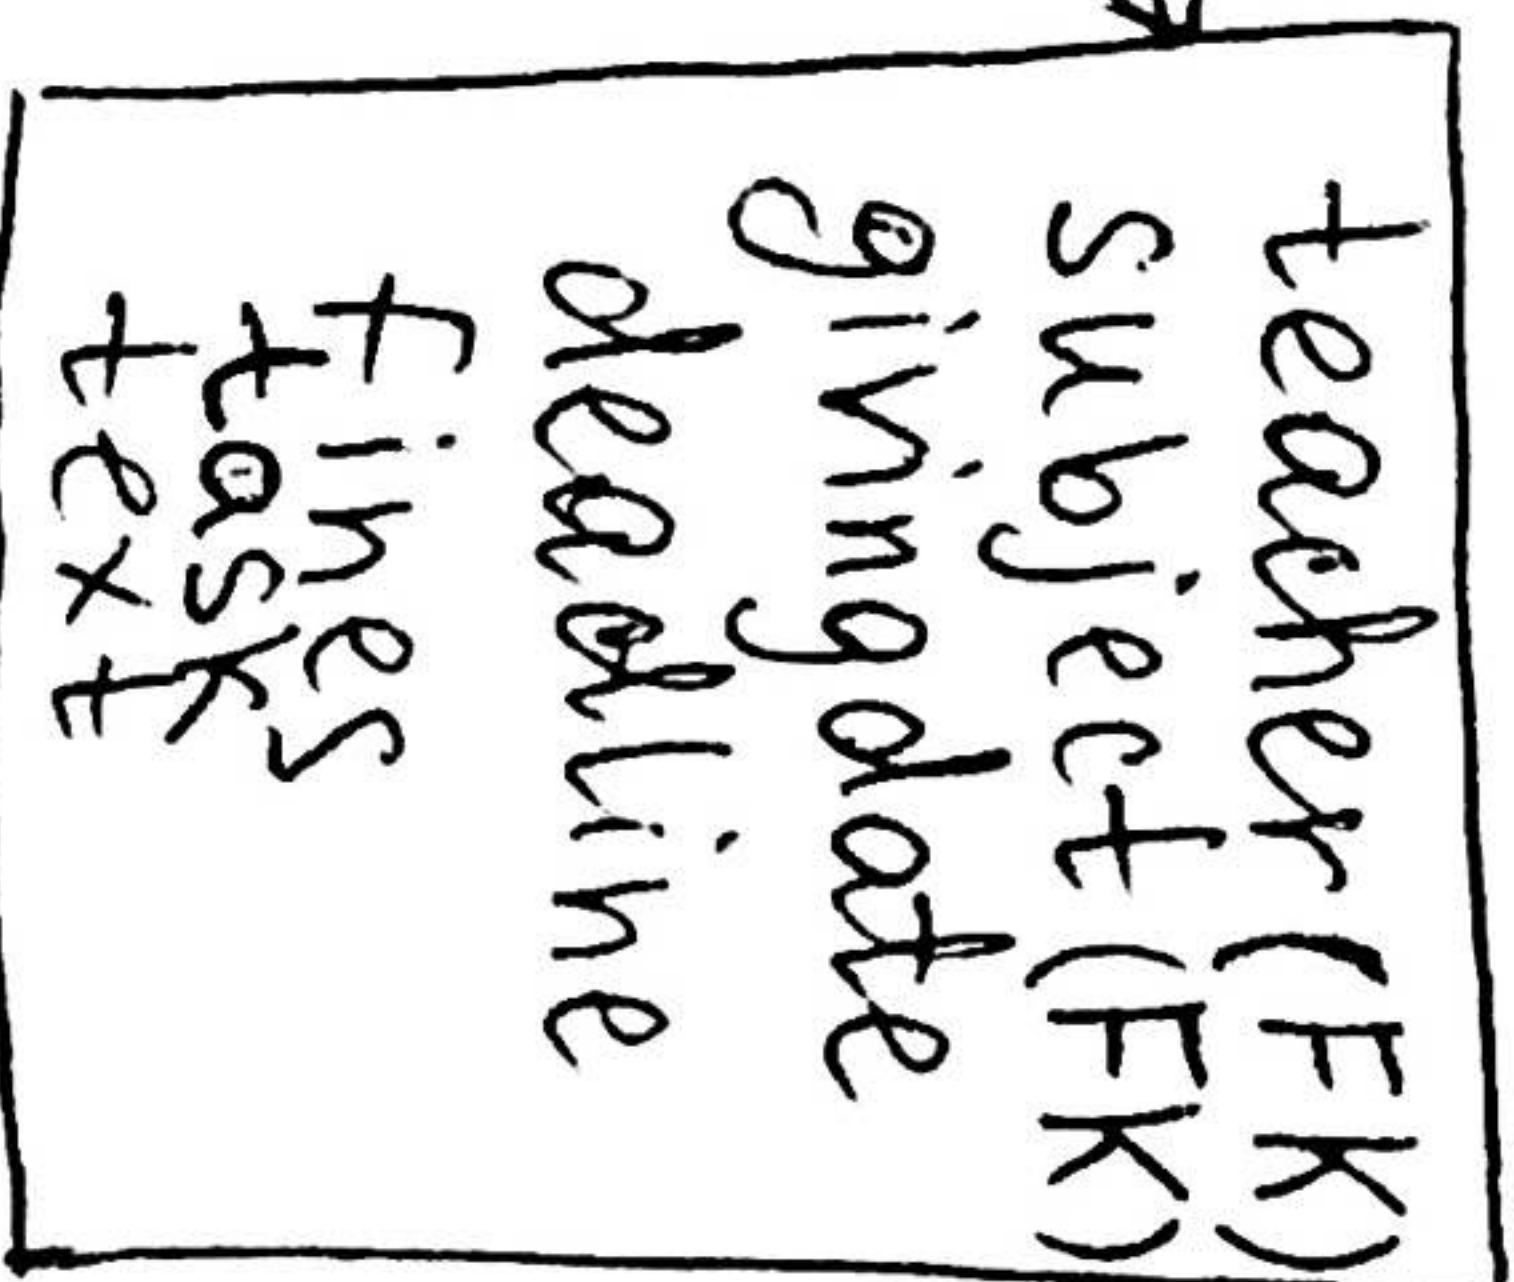 teacher (FK)
subject (FK)
givingdate
deadline
fines
task
text